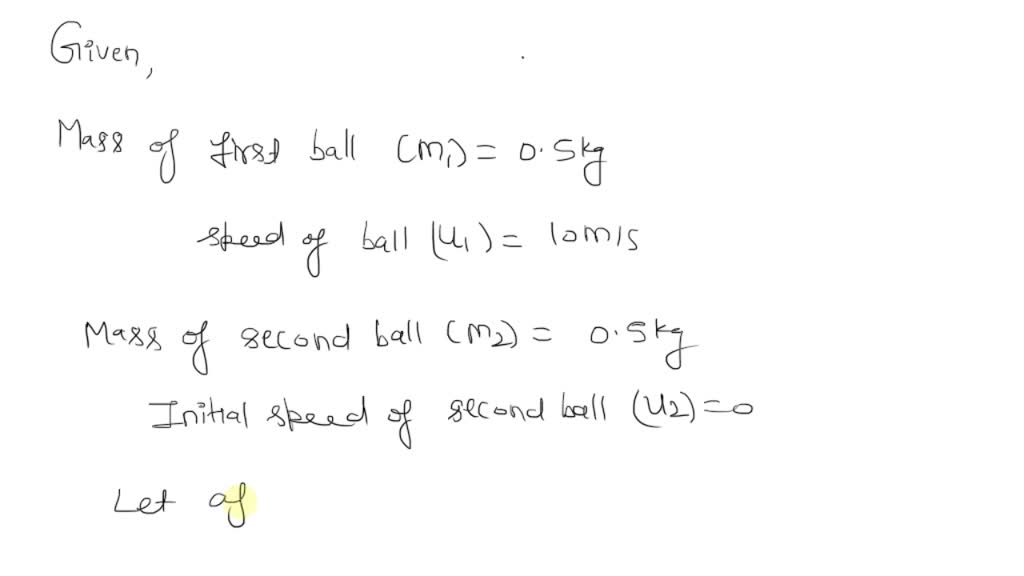 Given,
Mass of first ball (m₁) = 0.5kg
speed of ball (u₁) = 10m/s
Mass of second ball (m2) = 0.5kg
Initial speed of second ball (u2) = 0
Let af